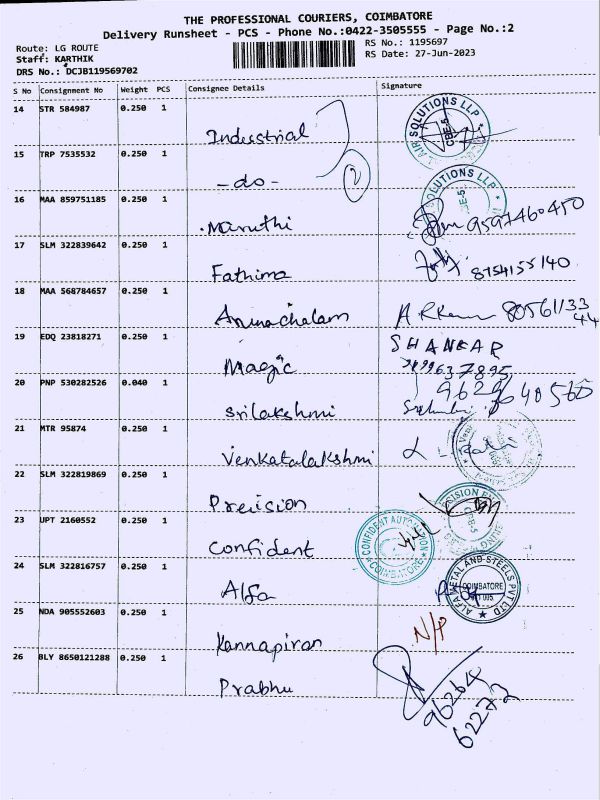 THE PROFESSIONAL COURIERS, COIMBATORE
Delivery Runsheet - PCS - Phone No.:0422-3505555 - Page No.:2
Route: LG ROUTE
RS No.: 1195697
Staff: KARTHIK
RS Date: 27-Jun-2023
DRS No.: DCJB119569702
S No Consignment No Weight PCS Consignee Details Signature
14 STR 584987 0.250 1 Industrial
AIR SOLUTIONS LLP CBE-5
15 TRP 7535532 0.250 1 -do- 2
SOLUTIONS LLP
16 MAA 859751185 0.250 1 Maruthi 9597460450
17 SLM 322839642 0.250 1 Fathima 8754155140
18 MAA 568784657 0.250 1 Arunachalam 80561133
44
19 EDQ 23818271 0.250 1 Magic SHANKAR
20 PNP 530282526 0.040 1 Srilakshmi
21 MTR 95874 0.250 1 Venkatalakshmi
22 SLM 322819869 0.250 1 Precision
23 UPT 2160552 0.250 1 Confident CONFIDENT AUTOMATION COIMBATORE
24 SLM 322816757 0.250 1 Alfa ALFA METAL AND STEELS PVT LTD COIMBATORE
25 NDA 905552603 0.250 1 Kannapiran N/P
26 BLY 8650121288 0.250 1 Prabhu
96264
62272